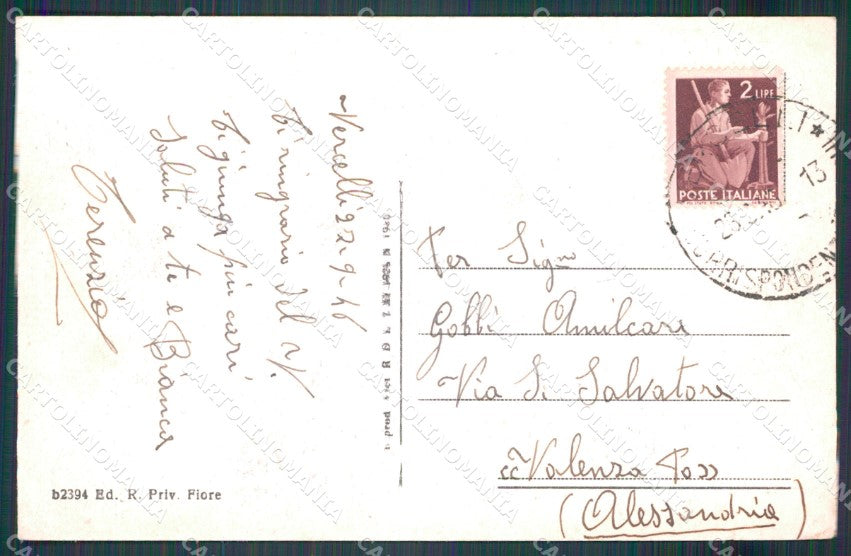 Vercelli 22-9-46
Ti ringrazio del V.
Ti giunga più cari
Saluti a te e Bianca
Terenzio
b2394 Ed. R. Priv. Fiore
2 LIRE
POSTE ITALIANE
13
CORRISPONDENZ
Per Sigra
Gobbi Amilcare
Via S. Salvatore
Valenza Po
(Alessandria)
CARTOLINOMANIA